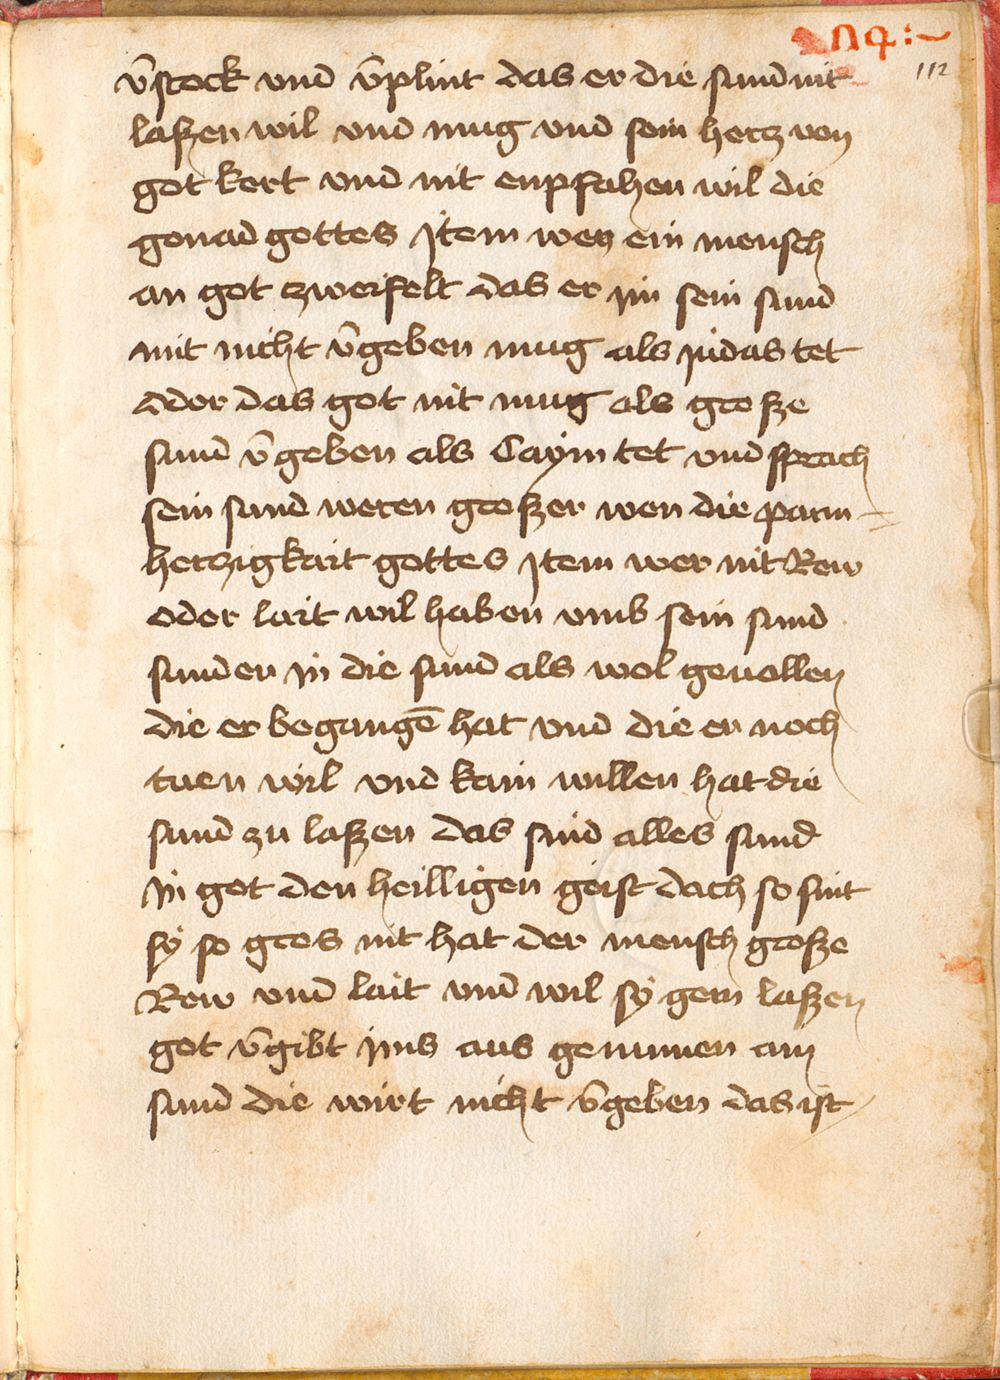 112
v̄stock vnd v̄plint das er die sund nit
laßen wil vnd mug vnd sein hertz von
got kert vnd nit enpfahen wil die
genad gottes Item wen ein mensch
an got zweifelt das er im sein sund
mit nicht v̄geben mug als judas tet
oder das got nit mug als große
sund v̄geben als Caym tet vnd sprach
sein sund weren großer wen die parm-
hertzigkait gottes Item wer nit Rew
oder lait wil haben vmb sein sund
sunder in die sund als wol geuallen
die er begangē hat vnd die er noch
tuen wil vnd kain willen hat die
sund zu laßen das sind alles sund
in got den heilligen geist doch so sint
sÿ so gros nit hat der mensch große
Rew vnd lait vnd wil sÿ gern laßen
got v̄gibt ims aus genumen ain
sund die wirt nicht v̄geben das ist